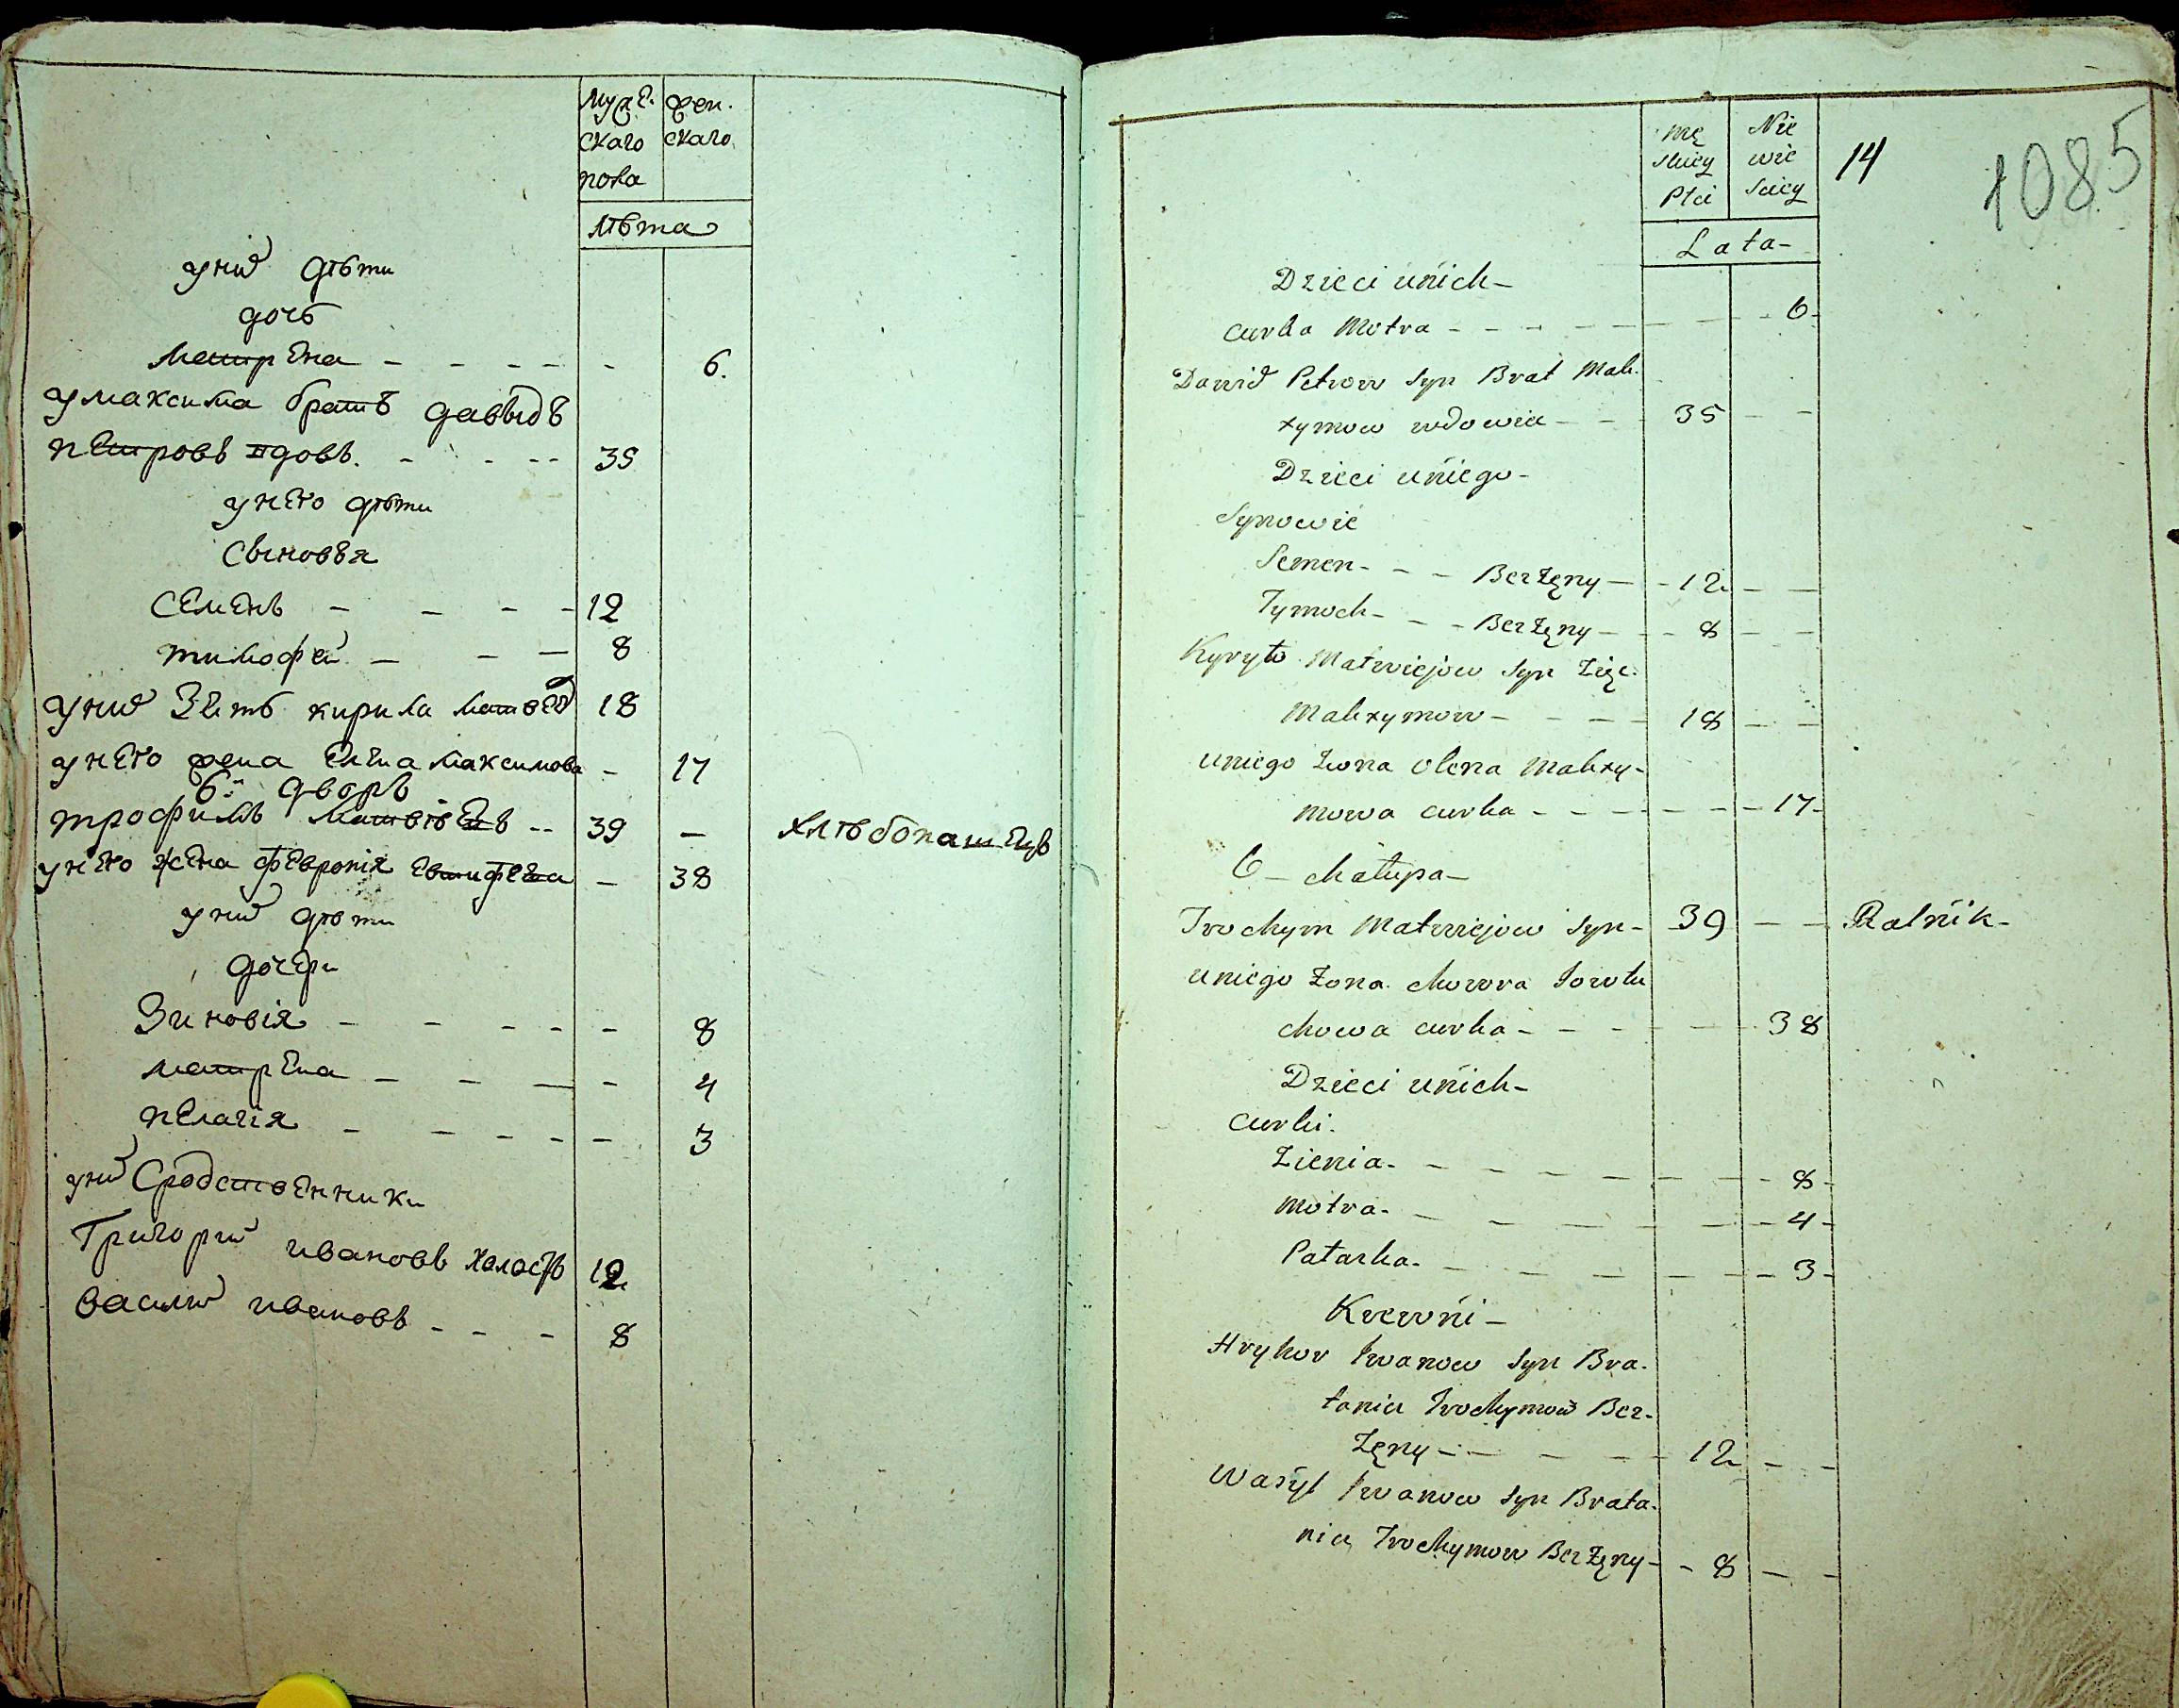 мужескаго пола
женскаго
лѣта
у них дѣти
дочь
матрена - - - - - 6.
у максима братъ давыдъ
петровъ вдовъ. - - - - 35
у него дѣти
сыновья
Семенъ - - - - 12
тимофей - - - 8
у них зять кирила матвѣев 18
у него жена елена максимова - 17
6й дворъ
трофимъ матвѣевъ - - 39 - хлѣбопашецъ
у него жена февронія - 38
у них дѣти
дочери
Зиновія - - - - - 8
матрена - - - - 4
пелагія - - - - - - 3
у них Сродственники
Григорий ивановъ холостъ 12
василий ивановъ - - - 8
Mę skiey Płci
Nie wie sciey
14
1085
Lata -
Dzieci u nich -
curka Motra - - - - - - - - 6 -
Dawid Petrow syn Brat Mak-
xymow wdowiec - - - 35 - -
Dzieci u niego -
Synowie
Semen - - - Bezżęny - - 12 - -
Tymoch - - - Bezżęny - - 8 - -
Kyryło Matwiejow syn Zięć
Makxymow - - - - - 18 - -
u niego Żona Olena Makxy-
mowa curka - - - - - - - 17 -
6 - Chałupa -
Trochym Matwiejow syn - 39 - - Ralnik -
u niego Żona Chowra
chowa curka - - - - - - 38
Dzieci u nich -
curki.
Zienia - - - - - - - - - 8 -
Motra - - - - - - - - 4 -
Patarka - - - - - - - - 3 -
Krewni -
Hryhor Iwanow syn Bra-
tanic Trochymow Bez-
żęny - - - - - - 12 - -
Wasyl Iwanow syn Brata-
nic Trochymow Bezżęny - - 8 - -